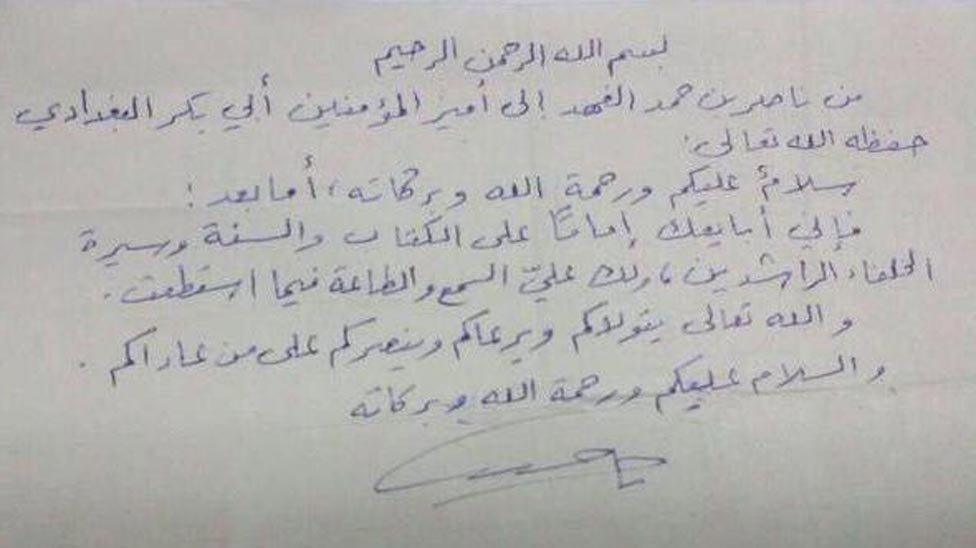 بسم الله الرحمن الرحيم
من ناصر بن حمد الفهد إلى أمير المؤمنين أبي بكر البغدادي
حفظه الله تعالى.
سلامٌ عليكم ورحمة الله وبركاته، أما بعد:
فإني أبايعك إمامًا على الكتاب والسنة وسيرة
الخلفاء الراشدين، ولك عليّ السمع والطاعة فيما استطعت.
والله تعالى يتولاكم ويرعاكم وينصركم على من عاداكم.
والسلام عليكم ورحمة الله وبركاته